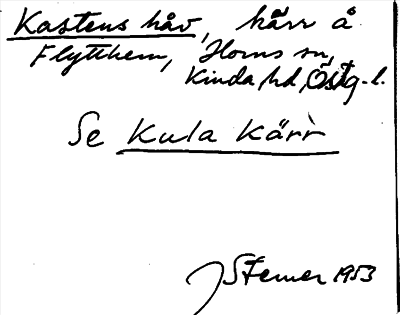 Kastens håv, kärr å
Flytthem, Horns sn,
Kinda hd, Östg.-l.
Se Kula Kärr
J Stemer 1953